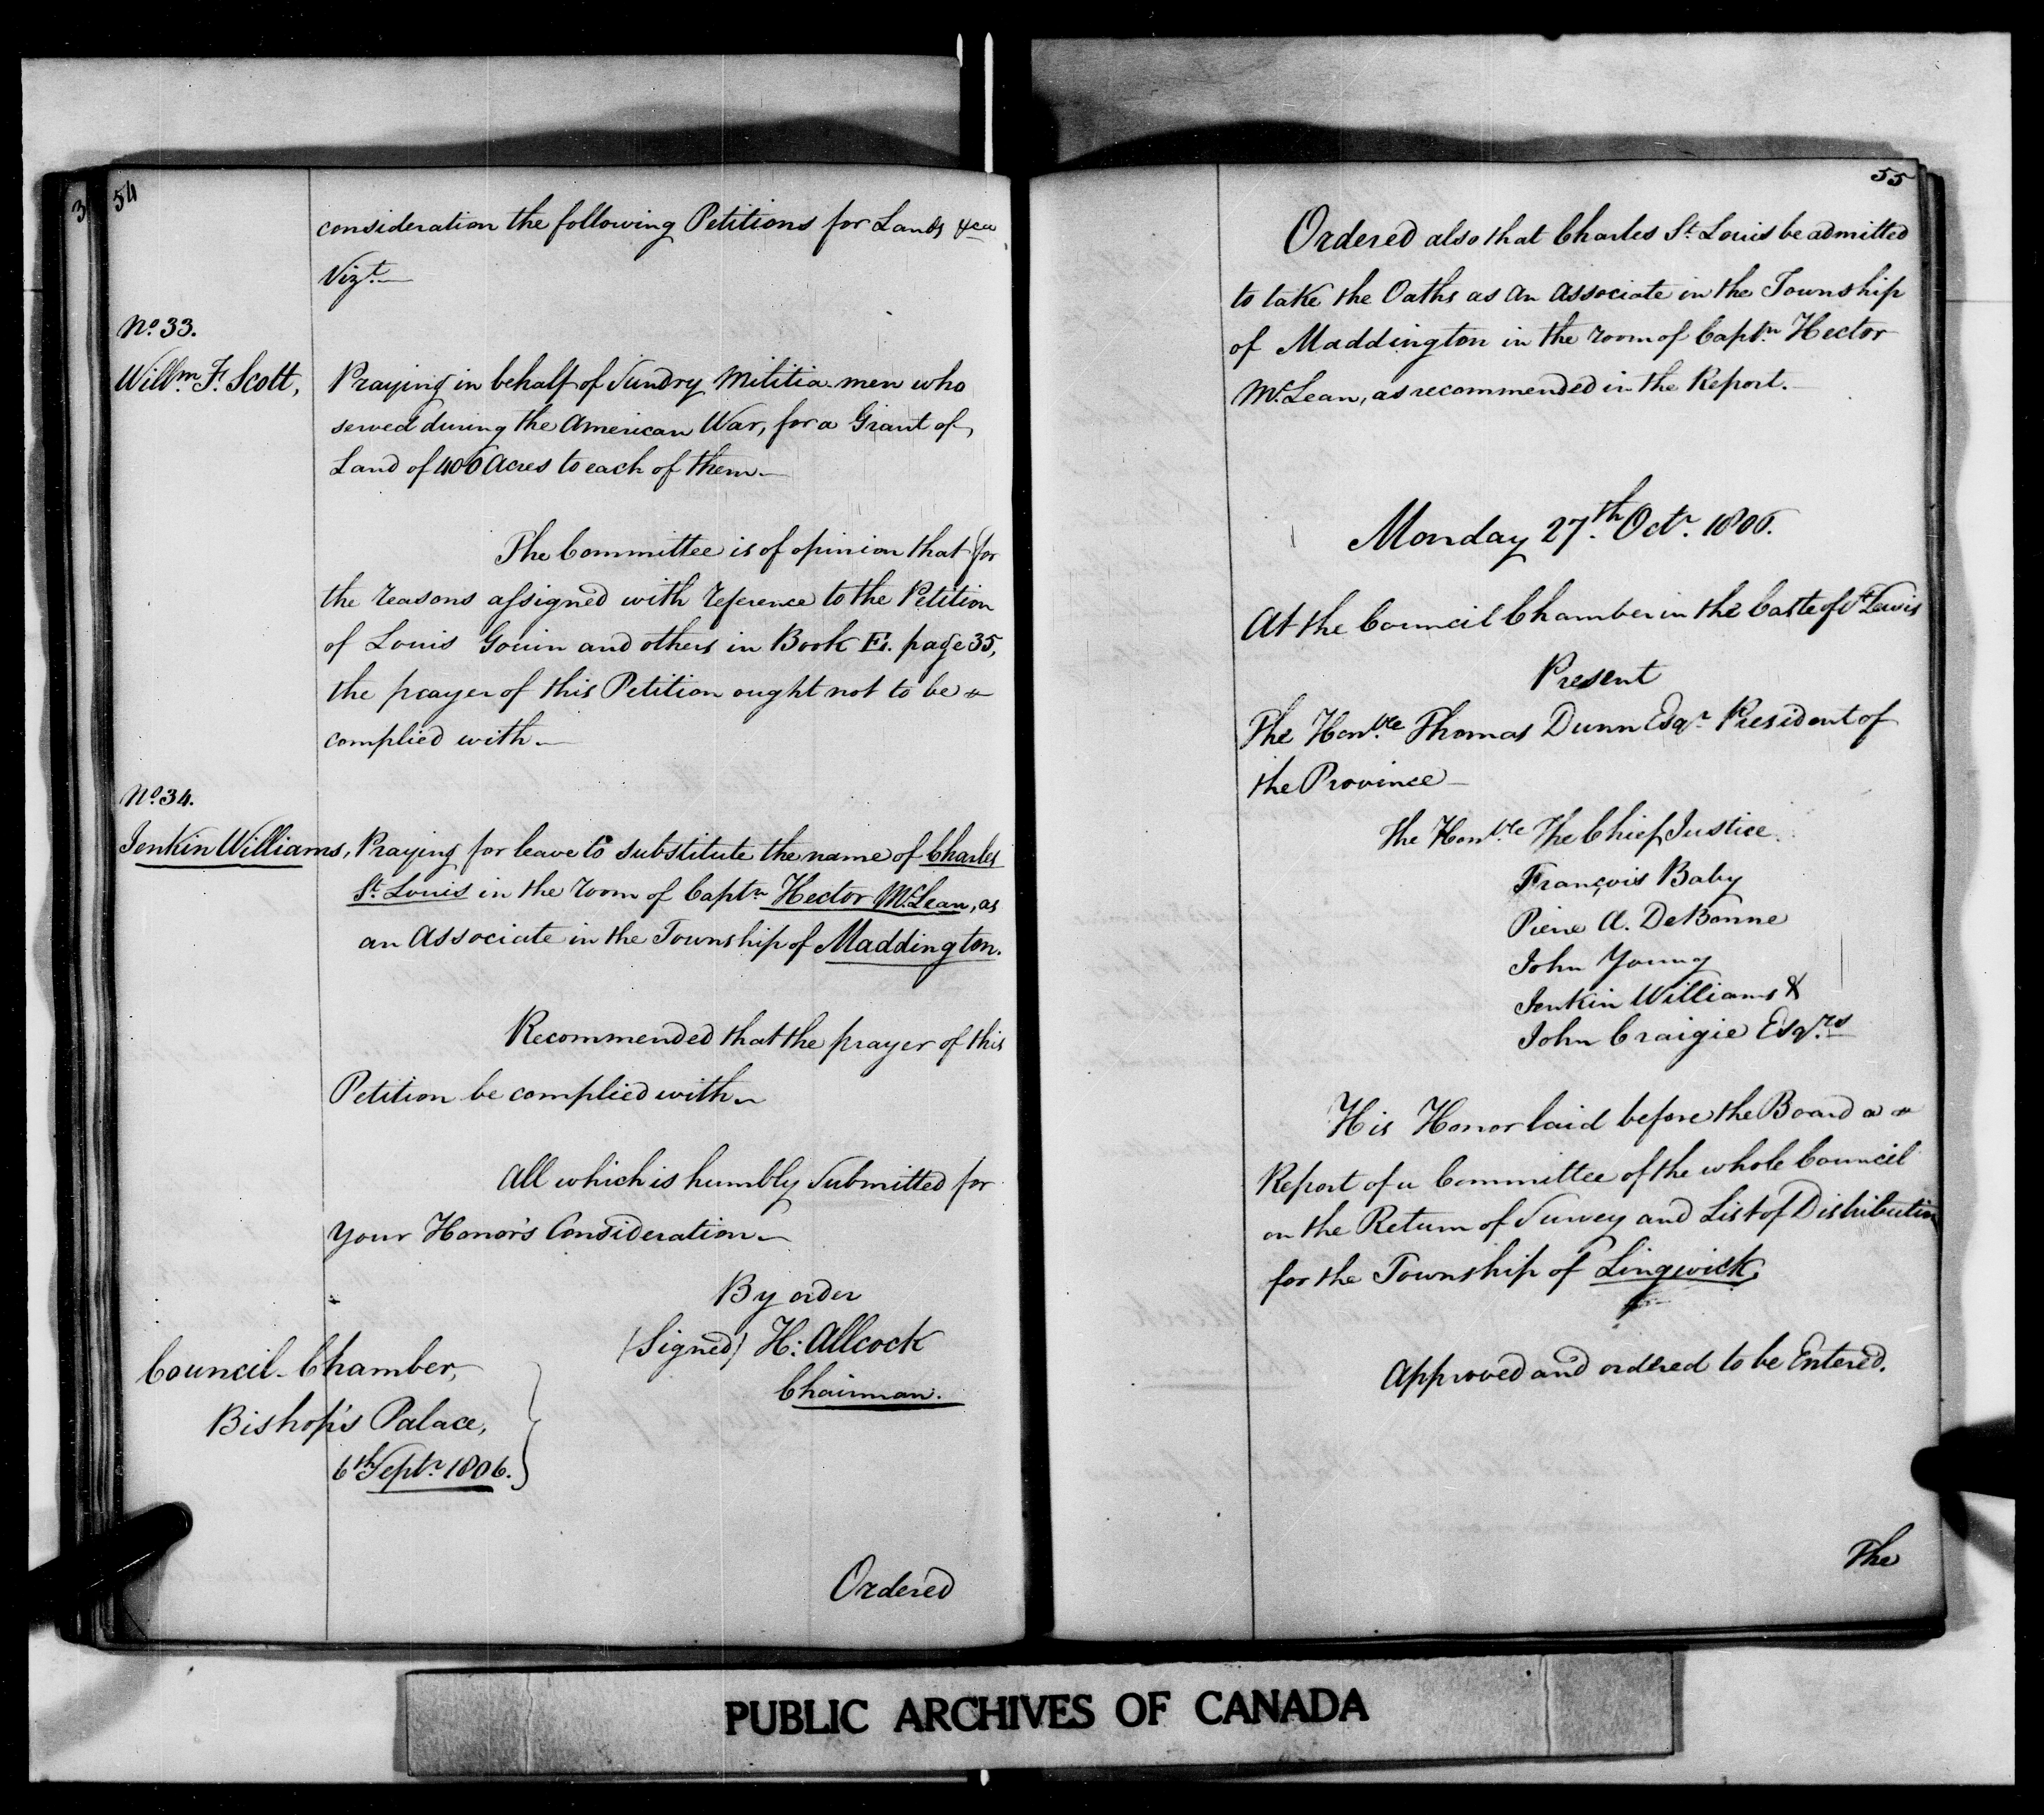 54
consideration the following Petitions for Lands &ca
Vizt.
No. 33.
Willm. F. Scott,
Praying in behalf of Sundry Militia men who
served during the American War, for a Grant of
Land of 400 Acres to each of them.
The Committee is of opinion that for
the reasons assigned with reference to the Petition
of Louis Gouin and others in Book E. page 35,
the prayer of this Petition ought not to be
complied with.
No. 34.
Jenkin Williams, Praying for leave to substitute the name of Charles
St. Louis in the room of Captn. Hector McLean, as
an Associate in the Township of Maddington.
Recommended that the prayer of this
Petition be complied with.
All which is humbly Submitted for
Your Honor's Consideration.
By order
(Signed) H: Allcock
Chairman.
Council-Chamber,
Bishop's Palace,
6th Septr. 1806.
Ordered
55
Ordered also that Charles St. Louis be admitted
to take the Oaths as an Associate in the Township
of Maddington in the room of Captn. Hector
McLean, as recommended in the Report.
Monday 27th. Octr. 1806.
At the Council Chamber in the Castle of St. Lewis
Present
The Honble. Thomas Dunn Esqr. President of
the Province
The Honble. The Chief Justice
François Baby
Pierre A. DeBonne
John Young
Jenkin Williams &
John Craigie Esqrs
His Honor laid before the Board a
Report of a Committee of the whole Council
on the Return of Survey and List of Distribution
for the Township of Lingwick.
Approved and ordered to be Entered.
The
PUBLIC ARCHIVES OF CANADA